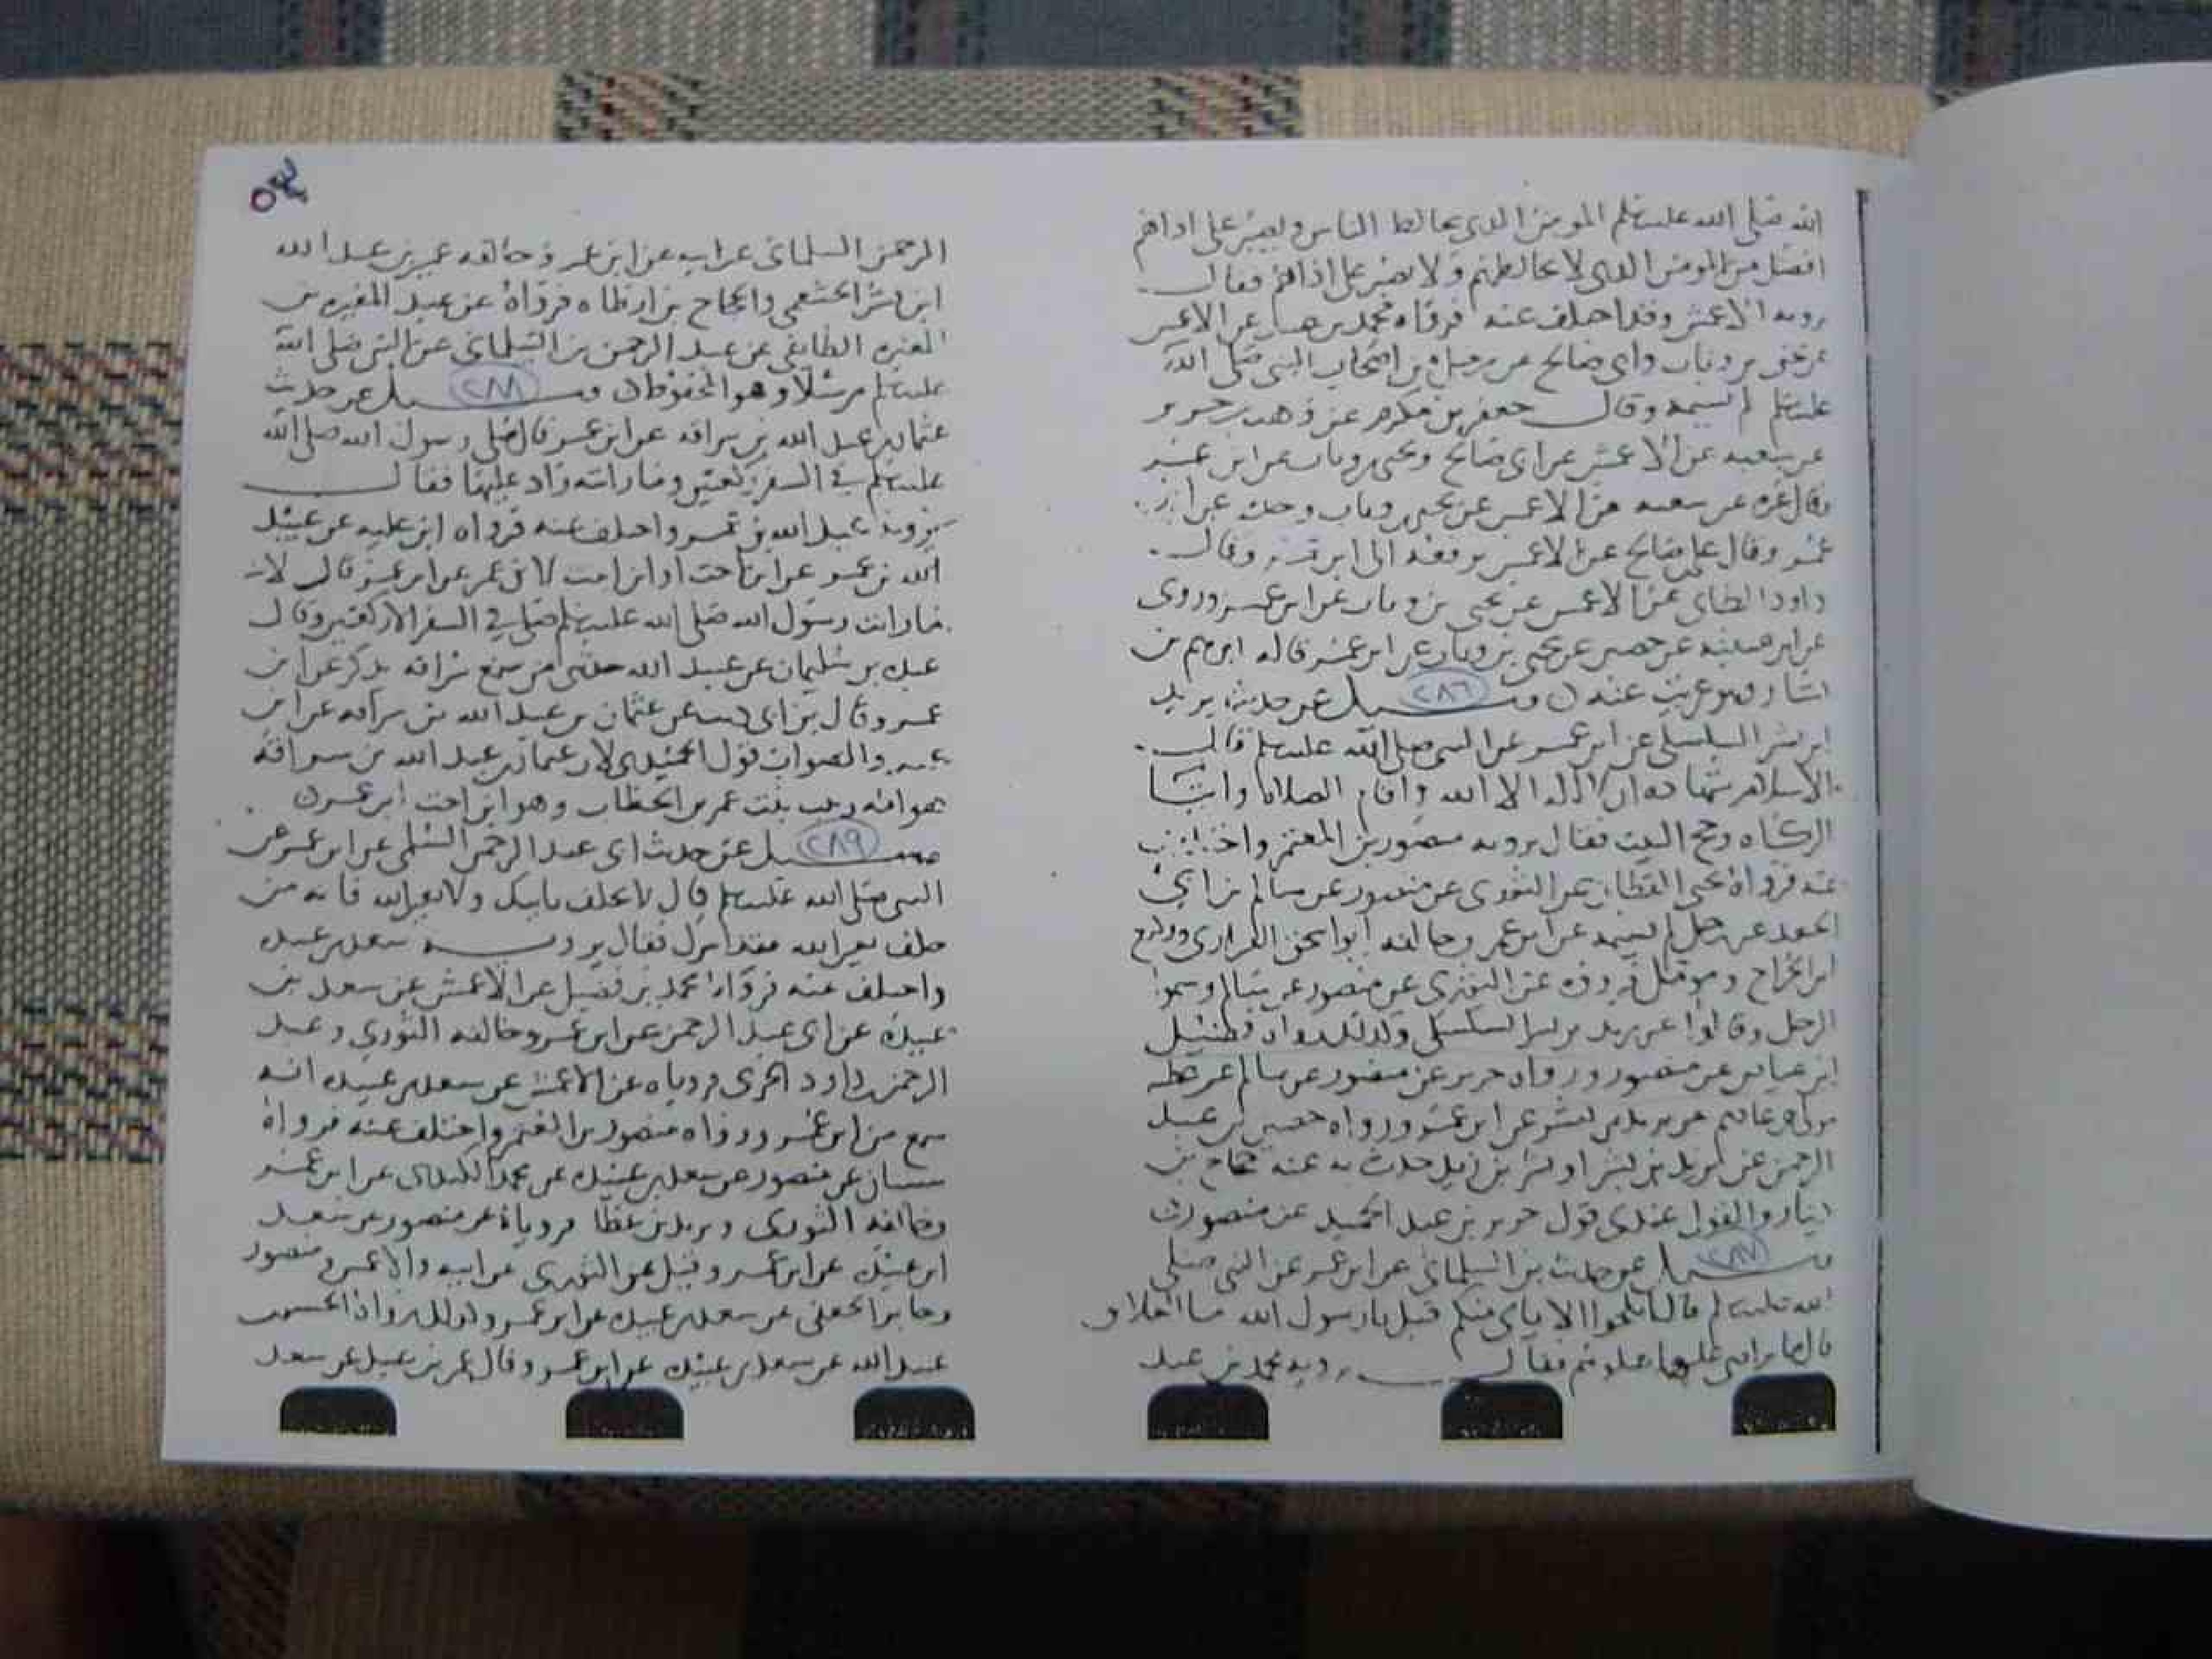 الله صلى الله عليه وسلم المومن الذي يخالط الناس ويصبر على اذاهم
افضل من المومن الذي لا يخالطهم ولا يصبر على اذاهم فقال
يرويه الاعمش وقد اختلف عنه فرواه محمد بن عن الاعمش
عن يحيى بن وثاب وابي صالح عن رجل من اصحاب النبي صلى الله
عليه وسلم لم يسمه وقال جعفر بن مكرم عن وهب بن جرير
عن شعبه عن الاعمش عن ابي صالح ويحيى بن وثاب عن ابن عمر
وقال غيره عن شعبه عن الاعمش عن يحيى بن وثاب وحده عن ابن
عمر وقال علي بن صالح عن الاعمش يرفعه الى ابن عمر وقال
داود الطاي عن الاعمش عن يحيى بن وثاب عن ابن عمر وروى
عن ابن عيينه عن حصين عن يحيى بن وثاب عن ابن عمر قاله ابرهيم بن
بشار وهو غريب عنه ن وسيل ٢٨٦ عن حديث يزيد
ابن بشر السكسكي عن ابن عمر عن النبي صلى الله عليه وسلم قال
الاسلام شهاده ان لا اله الا الله واقام الصلاه وايتا
الزكاه وحج البيت فقال يرويه منصور بن المعتمر واختلف
عنه فرواه يحيى القطان عن الثوري عن منصور عن سالم بن ابي
الجعد عن رجل لم يسمه عن ابن عمر وخالفه ابو اسحق الفزاري ووكيع
ابن الجراح ومومل فرووه عن الثوري عن منصور عن سالم وسموا
الرجل وقالوا عن يزيد بن بشر السكسكي وكذلك رواه فضيل
ابن عياض عن منصور ورواه جرير عن منصور عن سالم عن عطيه
مولى بني عامر عن يزيد بن بشر عن ابن عمر ورواه حصين بن عبد
الرحمن عن يزيد بن بشر او بشر بن يزيد حدث به عنه حجاج بن
دينار والقول عندي قول جرير بن عبد الحميد عن منصور ن
وسيل ٢٨٧ عن حديث بن البيلماني عن ابن عمر عن النبي صلى
الله عليه وسلم قال انكحوا الايامى منكم قيل يا رسول الله ما العلايق
قال ما تراضى عليه اهلوهم فقال يرويه محمد بن عبد
الرحمن البيلماني عن ابيه عن ابن عمر وخالفه عمير بن عبد الله
ابن بشر الخثعمي والحجاج بن ارطاه فرواه عن عبد الملك بن
المغيره الطايفي عن عبد الرحمن بن البيلماني عن النبي صلى الله
عليه وسلم مرسلا وهو المحفوظ ن وسيل ٢٨٨ عن حديث
عثمان بن عبد الله بن سراقه عن ابن عمر قال صلى رسول الله صلى الله
عليه وسلم في السفر ركعتين وما رايته زاد عليها فقال
يرويه عبيد الله بن عمر واختلف عنه فرواه ابن عليه عن عبيد
الله بن عمر عن ابن اخت او ابن امت لابن عمر عن ابن عمر قال
ما رايت رسول الله صلى الله عليه وسلم صلى في السفر الا ركعتين وقال
عبده بن سليمان عن عبيد الله حدثني من سمع سراقه يذكر عن ابن
عمر وقال بن ابي عن عثمان بن عبد الله بن سراقه عن ابن
عمر والصواب قول الحميدي لان عثمان بن عبد الله بن سراقه
هو امه زينب بنت عمر بن الخطاب وهو ابن اخت ابن عمر ن
وسيل ٢٨٩ عن حديث ابي عبد الرحمن السلمي عن ابن عمر عن
النبي صلى الله عليه وسلم قال لا تحلف بابيك ولا بغير الله فانه من
حلف بغير الله فقد اشرك فقال يرويه سعد بن عبيده
واختلف عنه فرواه محمد بن فضيل عن الاعمش عن سعد بن
عبيده عن ابي عبد الرحمن عن ابن عمر وخالفه الثوري وعبد
الرحمن بن داود فروياه عن الاعمش عن سعد بن عبيده انه
سمع من ابن عمر ورواه منصور بن المعتمر واختلف عنه فرواه
شيبان عن منصور عن سعد بن عبيده عن محمد الكندي عن ابن عمر
وخالفه الثوري ويزيد بن عطا فروياه عن منصور عن سعد
ابن عبيده عن ابن عمر وقيل عن الثوري عن ابيه والاعمش ومنصور
وجابر الجعفي عن سعد بن عبيده عن ابن عمر وكذلك رواه الحسن بن
عبيد الله عن سعد بن عبيده عن ابن عمر وقال عمر بن عبيد عن سعد